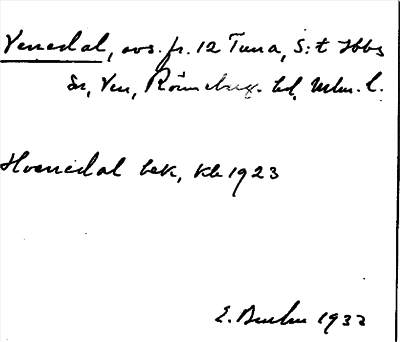 Venedal, avs. fr. 12 Tuna, S:t Ibbs
Sn, Ven, Rönnebergs hd, Mlm. l.
Hvenedal bek, kb 1923
E. 1932